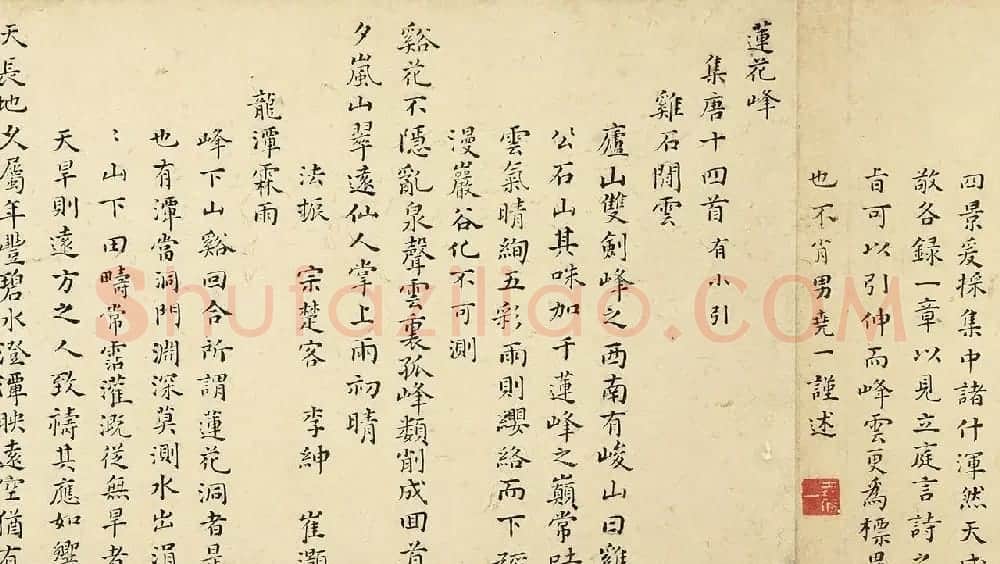 四景爰採集中諸什渾然天
敬各録一章以見立庭言詩之
旨可以引伸而峰雲更為標
也不肖男堯一謹述
蓮花峰
集唐十四首有小引
雞石閒雲
廬山雙劍峰之西南有峻山曰雞
公石山其咮加千蓮峰之巔常吐
雲氣晴絢五彩雨則纓絡而下
漫巖谷化不可測
谿花不隱亂泉聲雲裏孤峰類削成回首
夕嵐山翠遠仙人掌上雨初晴
法振 宗楚客 李紳 崔灝
龍潭霖雨
峰下山谿回合所謂蓮花洞者是
也有潭當洞門淵深莫測水出涓
〻山下田疇常霑灌溉從無旱者
天旱則遠方之人致禱其應如響
天長地久屬年豐碧水澄潭映遠空猶有
Shufaziliao.COM